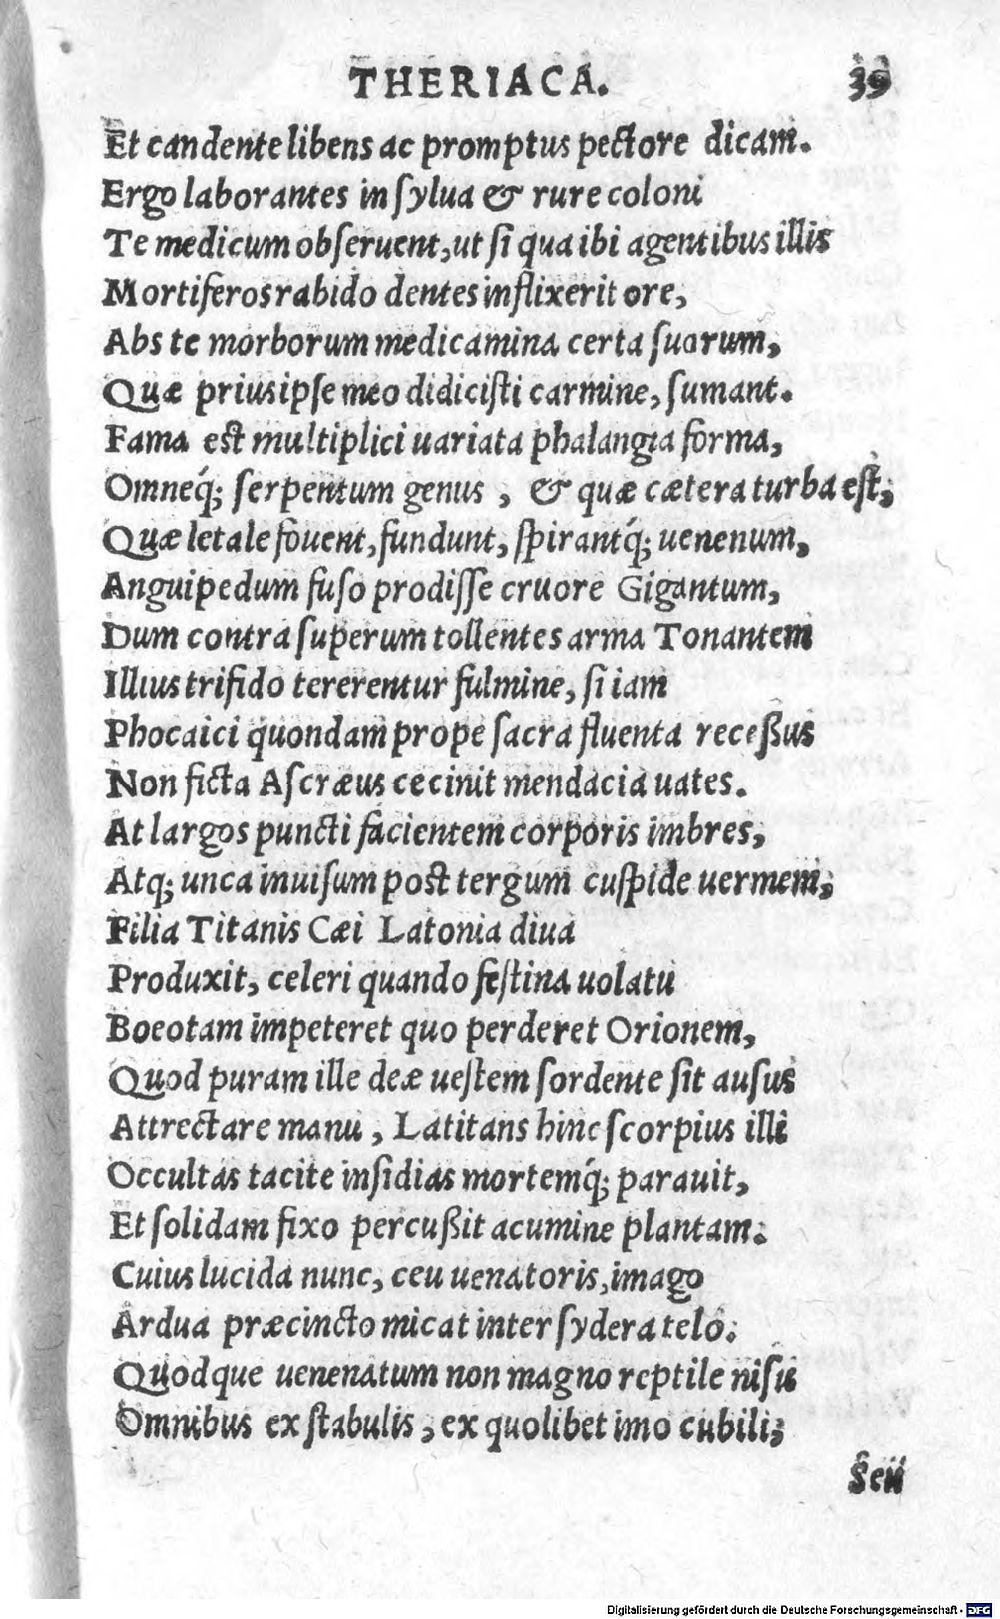 THERIACA. 39
Et candente libens ac promptus pectore dicam.
Ergo laborantes in ſylua & rure coloni
Te medicum obſeruent, ut ſi qua ibi agentibus illis
Mortiferos rabido dentes inflixerit ore,
Abs te morborum medicamina certa ſuorum,
Quæ prius ipſe meo didiciſti carmine, ſumant.
Fama eſt multiplici uariata phalangia forma,
Omneq́; ſerpentum genus, & quæ cætera turba eſt,
Quæ letale fouent, fundunt, ſpirantq́; uenenum,
Anguipedum fuſo prodiſſe cruore Gigantum,
Dum contra ſuperum tollentes arma Tonantem
Illius trifido tererentur fulmine, ſi iam
Phocaici quondam prope ſacra fluenta receßus
Non ficta Aſcræus cecinit mendacia uates.
At largos puncti facientem corporis imbres,
Atq; unca inuiſum post tergum cuſpide uermem,
Filia Titanis Cæi Latonia diua
Produxit, celeri quando feſtina uolatu
Boeotam impeteret quo perderet Orionem,
Quod puram ille deæ ueſtem ſordente ſit auſus
Attrectare manu, Latitans hinc ſcorpius illi
Occultas tacite inſidias mortemq́; parauit,
Et ſolidam fixo percußit acumine plantam.
Cuius lucida nunc, ceu uenatoris, imago
Ardua præcincto micat inter ſydera telo.
Quodque uenenatum non magno reptile niſu
Omnibus ex ſtabulis, ex quolibet imo cubili;
Seu
Digitalisierung gefördert durch die Deutsche Forschungsgemeinschaft - DFG